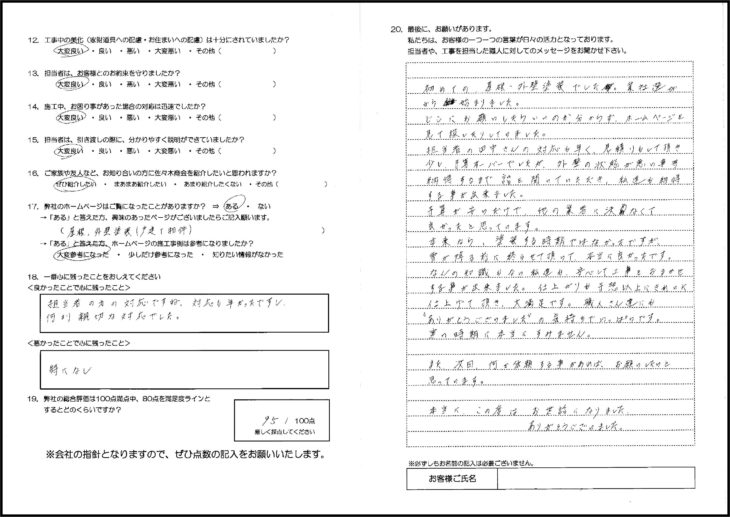 12. 工事中の美化（家財道具への配慮・お住まいへの配慮）は十分にされていましたか？
大変良い ・ 良い ・ 悪い ・ 大変悪い ・ その他（　　　）
13. 担当者は、お客様とのお約束を守りましたか？
大変良い ・ 良い ・ 悪い ・ 大変悪い ・ その他（　　　）
14. 施工中、お困り事があった場合の対応は迅速でしたか？
大変良い ・ 良い ・ 悪い ・ 大変悪い ・ その他（　　　）
15. 担当者は、引き渡しの際に、分かりやすく説明ができていましたか？
大変良い ・ 良い ・ 悪い ・ 大変悪い ・ その他（　　　）
16. ご家族や友人など、お知り合いの方に佐々木商会を紹介したいと思われますか？
ぜひ紹介したい ・ まあまあ紹介したい ・ あまり紹介したくない ・ その他（　　　）
17. 弊社のホームページはご覧になったことがありますか？ ⇒ ある ・ ない
→「ある」と答えた方、興味のあったページがございましたらご記入願います。
（屋根、外壁塗装（戸建て物件
→「ある」と答えた方、ホームページの施工事例は参考になりましたか？
大変参考になった ・ 少しだけ参考になった ・ 知りたい情報がなかった
18. 一番心に残ったことをおしえてください
＜良かったことで心に残ったこと＞
担当者の方の対応ですね、対応も早かったですし、
何より親切な対応でした。
＜悪かったことで心に残ったこと＞
特になし
19. 弊社の総合評価は100点満点中、80点を満足度ラインと
するとどのくらいですか？
95 / 100点
厳しく採点してください
※会社の指針となりますので、ぜひ点数の記入をお願いいたします。
20. 最後に、お願いがあります。
私たちは、お客様の一つ一つの言葉が日々の活力となっております。
担当者や、工事を担当した職人に対してのメッセージをお聞かせ下さい。
初めての 屋根・外壁塗装でした。業社選び
から 始まりました。
どこにお願いしたらいいのか分からず、ホームページを
見て探したりしてきました。
担当者の田中さんの対応も早く、見積りもして頂き
少し予算オーバーでしたが、外壁の状態が悪い事等
納得するまで話を聞いていただき、私達も納得
する事が出来ました。
予算が そのおかげ、他の業者に決めなくて
良かったと思ってます。
本来なら、塗装する時期ではなかったですが、
雪が降る前に終らせて頂いて、本当に良かったです。
なんの知識もない私達も、安心して工事をおまかせ
する事が出来ました。仕上がりも予想以上にきれいに
仕上げて頂き、大満足です。職人さん達にも
"ありがとうございました"の気持ちでいっぱいです。
雪の時期に本当にすみません。
また 次回、何か依頼する事があれば、お願いしたいと
思っています。
本当に、この度は お世話になりました。
ありがとうございました。
※必ずしもお名前の記入は必要ございません。
お客様ご氏名